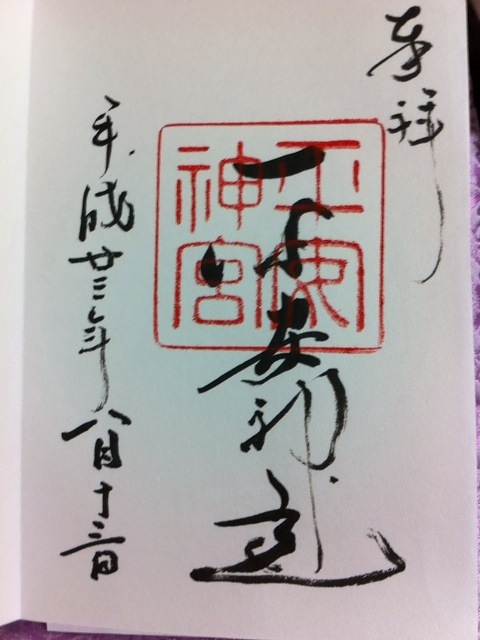 奉拝
平安神宮
平安神宮
平成廿三年八月十三日